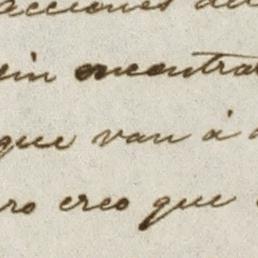 acciones del
sin encontrar
que van á
ro creo que